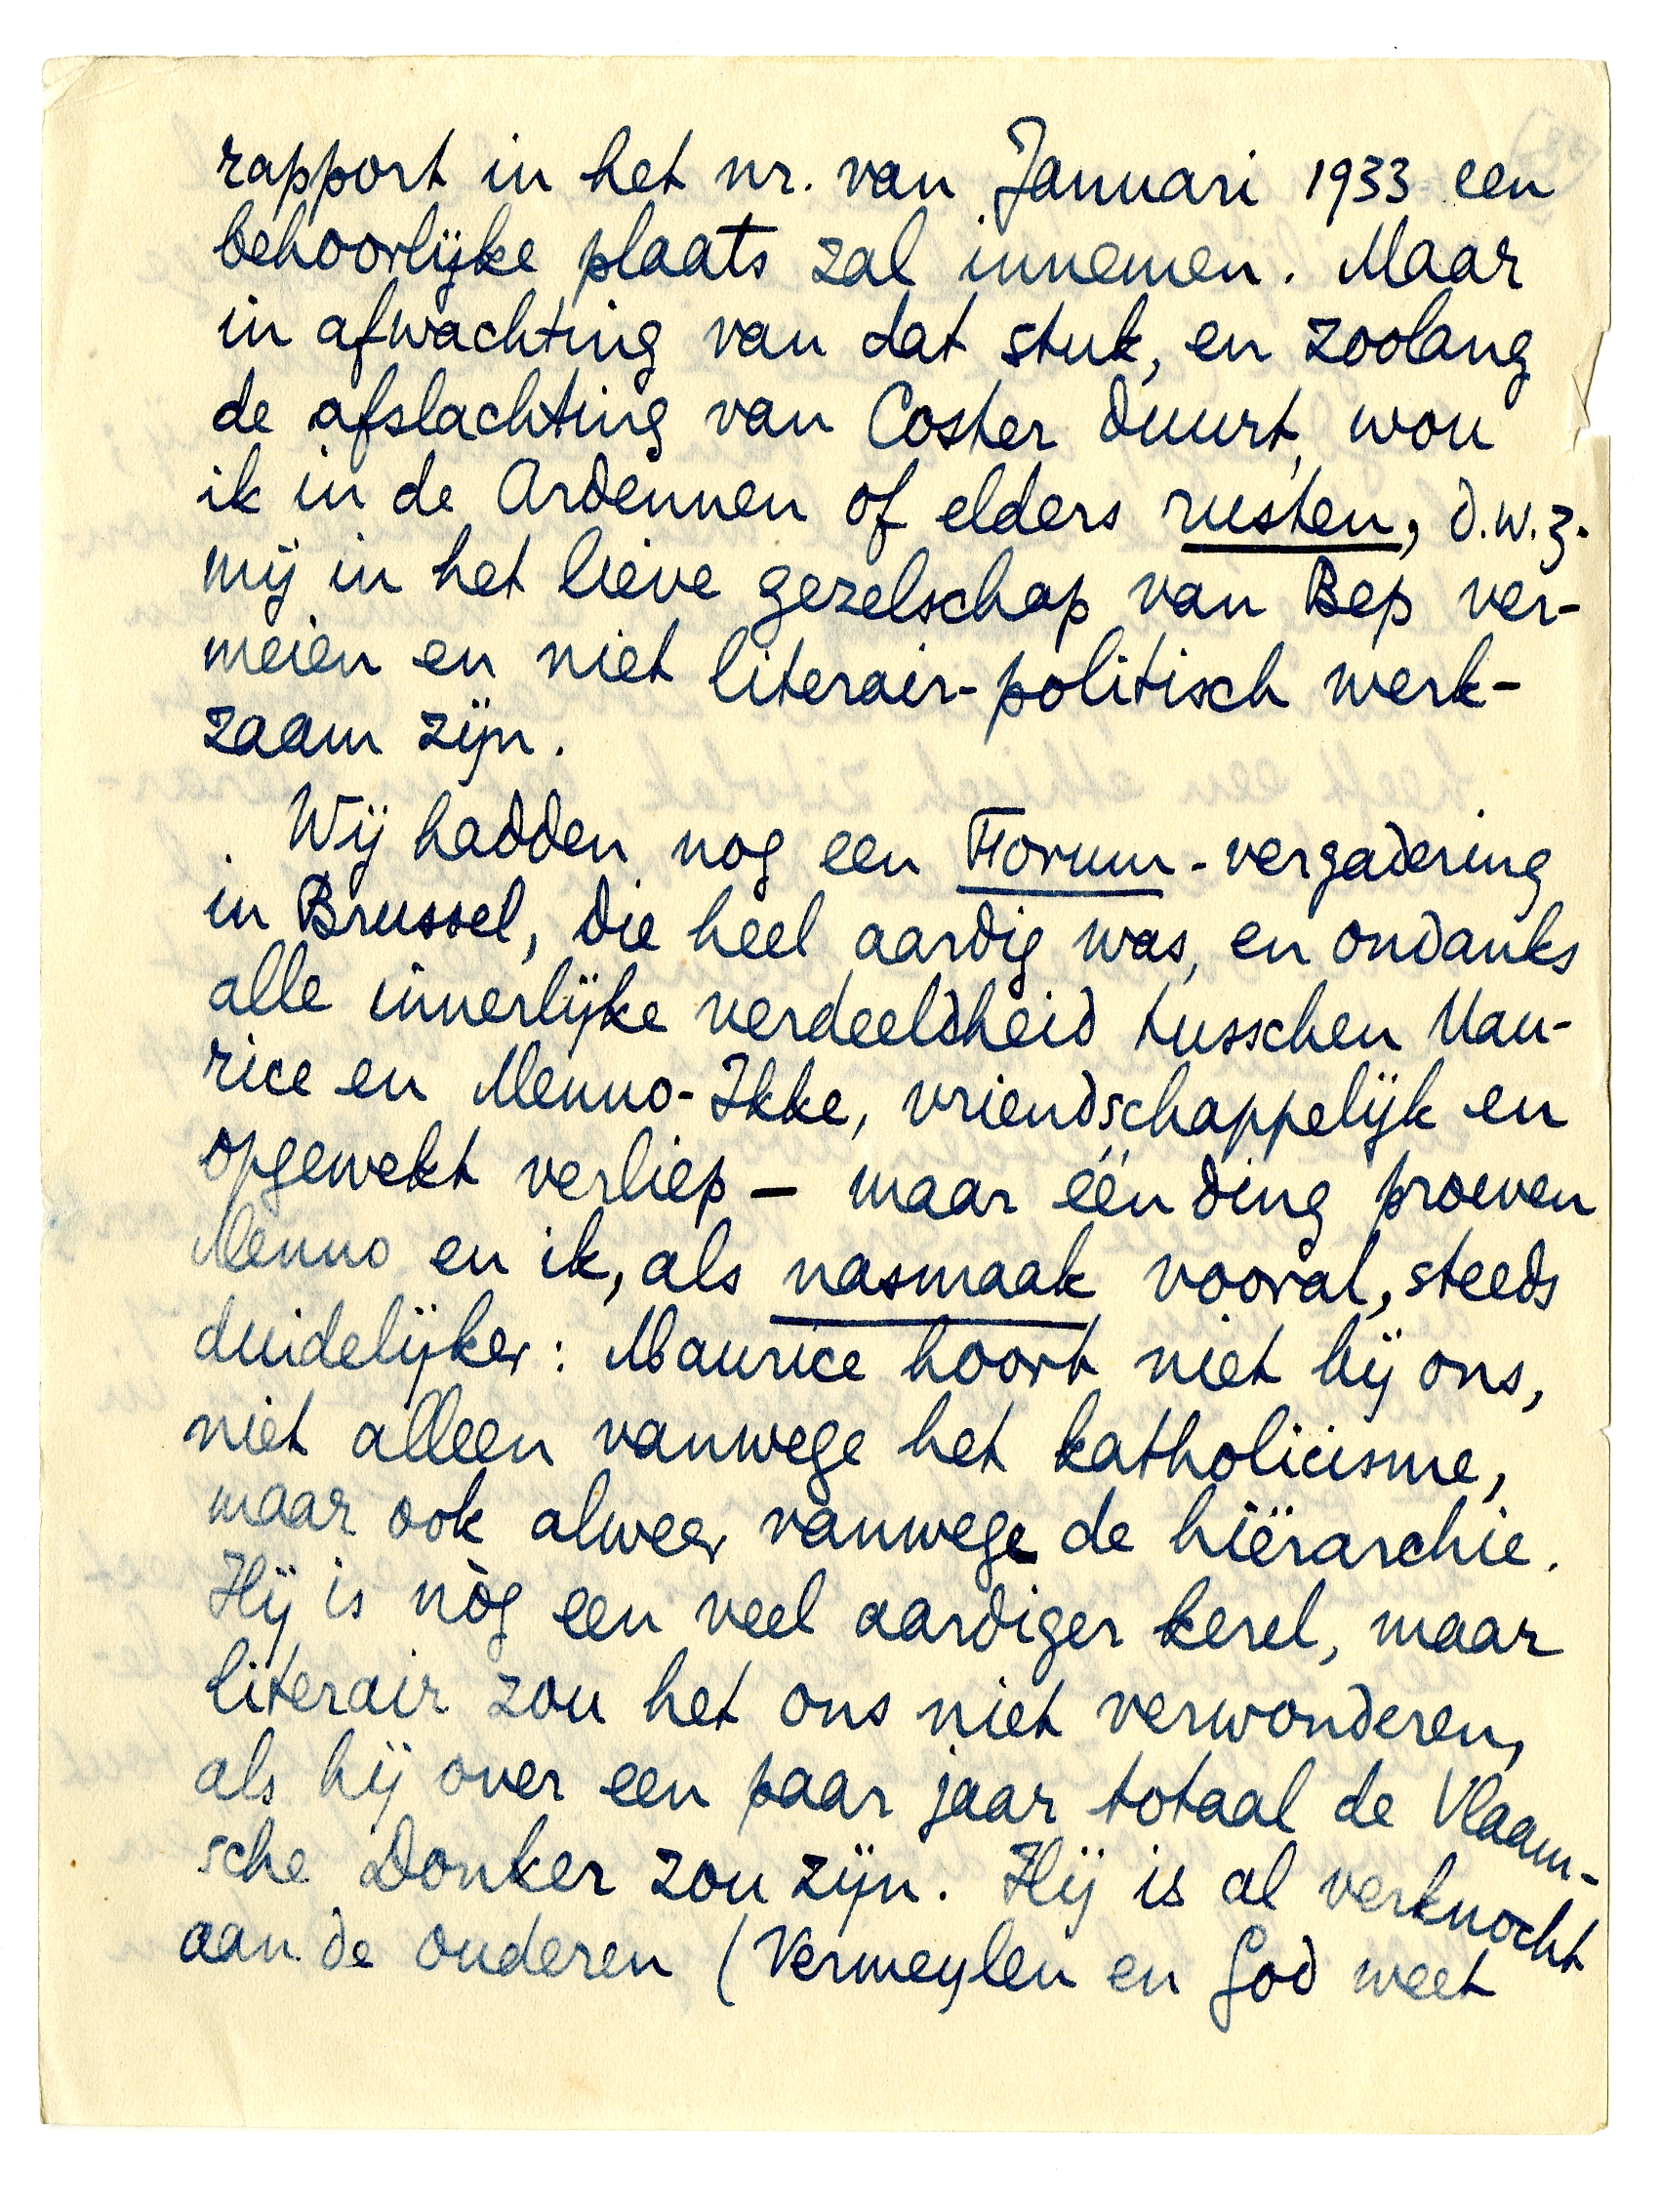 rapport in het nr. van Januari 1933 een
behoorlijke plaats zal innemen. Maar
in afwachting van dat stuk, en zoolang
de afslachting van Coster duurt, wou
ik in de Ardennen of elders rusten, d.w.z.
mij in het lieve gezelschap van Bep ver-
meien en niet literair-politisch werk-
zaam zijn.
Wij hadden nog een Forum-vergadering
in Brussel, die heel aardig was, en ondanks
alle innerlijke verdeeldheid tusschen Mau-
rice en Menno-Ikke, vriendschappelijk en
opgewekt verliep — maar één ding proeven
Menno en ik, als nasmaak vooral, steeds
duidelijker: Maurice hoort niet bij ons,
niet alleen vanwege het katholicisme,
maar ook alweer vanwege de hiërarchie.
Hij is nòg een veel aardiger kerel, maar
literair zou het ons niet verwonderen,
als hij over een paar jaar totaal de Vlaam-
sche Donker zou zijn. Hij is al verknocht
aan de ouderen (Vermeylen en God weet